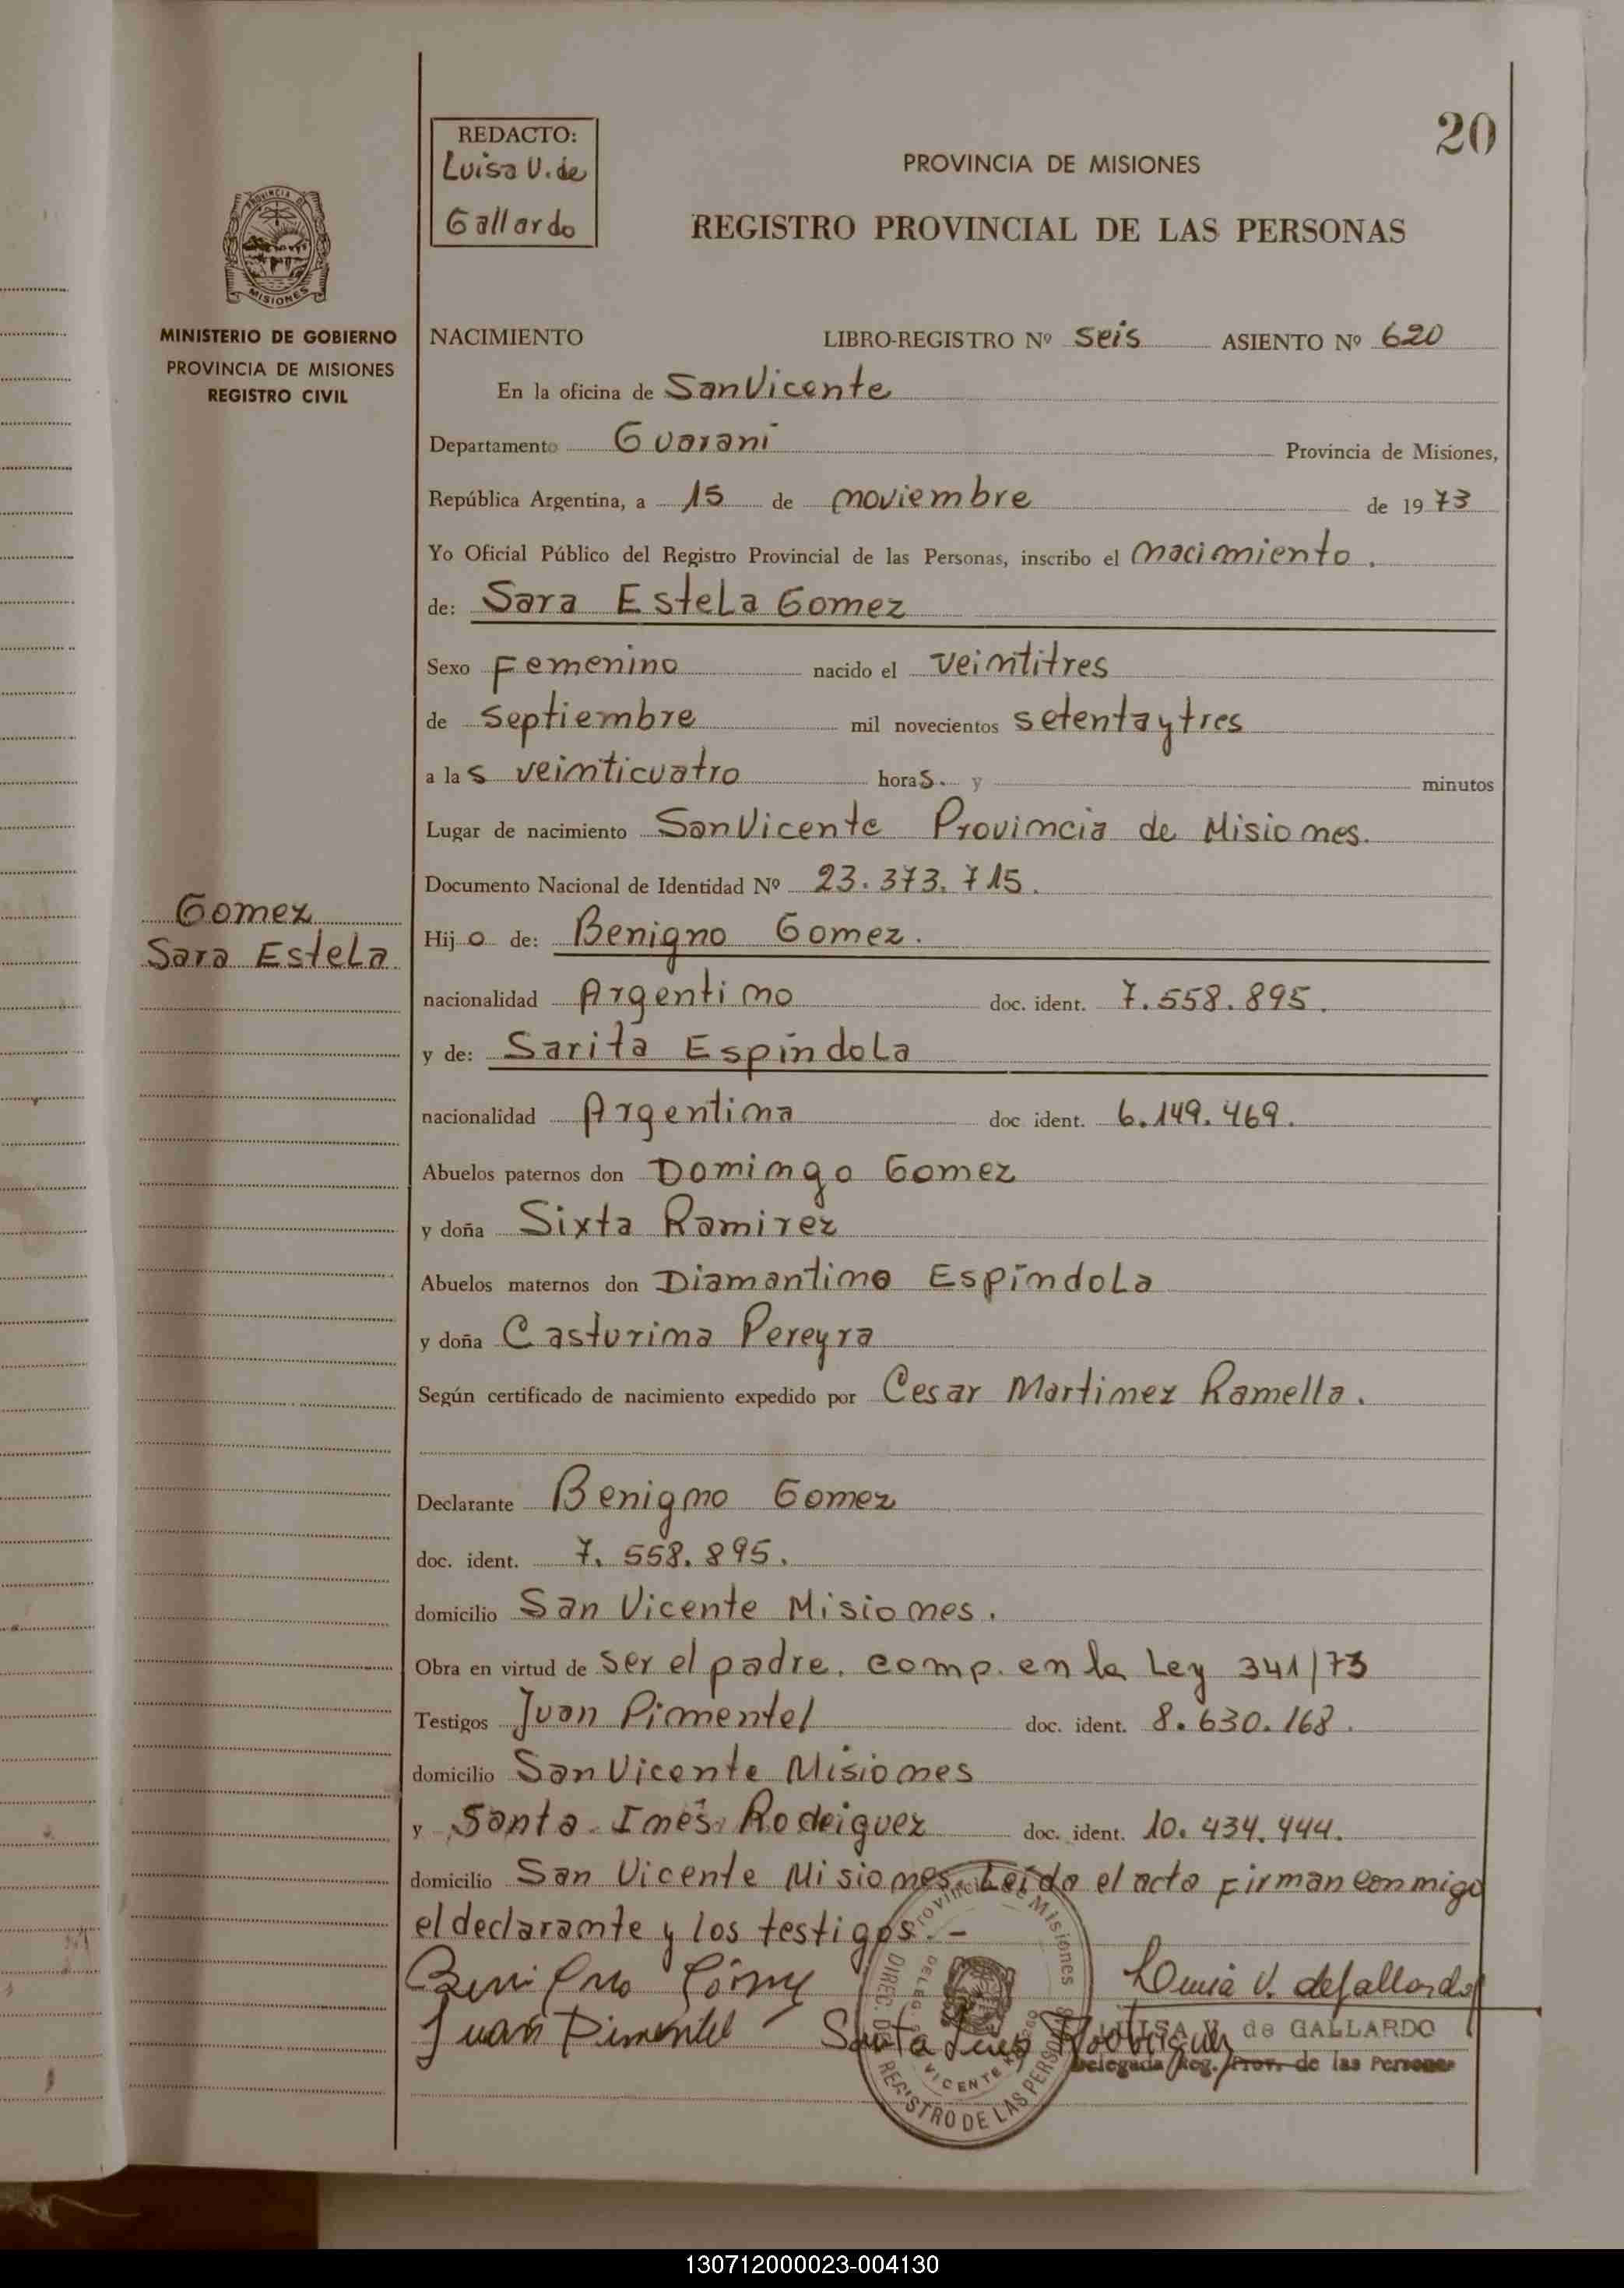 20
REDACTO:
Luisa V. de
Gallardo
PROVINCIA DE MISIONES
REGISTRO PROVINCIAL DE LAS PERSONAS
MISIONES
MINISTERIO DE GOBIERNO
PROVINCIA DE MISIONES
REGISTRO CIVIL
NACIMIENTO LIBRO-REGISTRO Nº seis ASIENTO Nº 620
En la oficina de San Vicente
Departamento Guarani Provincia de Misiones,
República Argentina, a 15 de noviembre de 1973
Yo Oficial Público del Registro Provincial de las Personas, inscribo el nacimiento.
de: Sara Estela Gomez
Sexo Femenino nacido el veintitres
de septiembre mil novecientos setenta y tres
a las veinticuatro horas. y minutos
Lugar de nacimiento San Vicente Provincia de Misiones.
Documento Nacional de Identidad Nº 23.373.715.
Gomez
Sara Estela
Hijo de: Benigno Gomez.
nacionalidad Argentino doc. ident. 7.558.895.
y de: Sarita Espíndola
nacionalidad Argentina doc ident. 6.149.469.
Abuelos paternos don Domingo Gomez
y doña Sixta Ramirez
Abuelos maternos don Diamantino Espíndola
y doña Casturina Pereyra
Según certificado de nacimiento expedido por Cesar Martinez Ramella.
Declarante Benigno Gomez
doc. ident. 7.558.895.
domicilio San Vicente Misiones.
Obra en virtud de ser el padre. comp. en la Ley 341/73
Testigos Juan Pimentel doc. ident. 8.630.168.
domicilio San Vicente Misiones
y Santa Inés Rodeiguez doc. ident. 10.434.444.
domicilio San Vicente Misiones. Leido el acto firman conmigo
el declarante y los testigos.-
Juan Pimentel Santa Ines Rodriguez
LUISA V. de GALLARDO
Delegada Reg. Prov. de las Personas
Provincia de Misiones
REGISTRO DE LAS PERSONAS
130712000023-004130